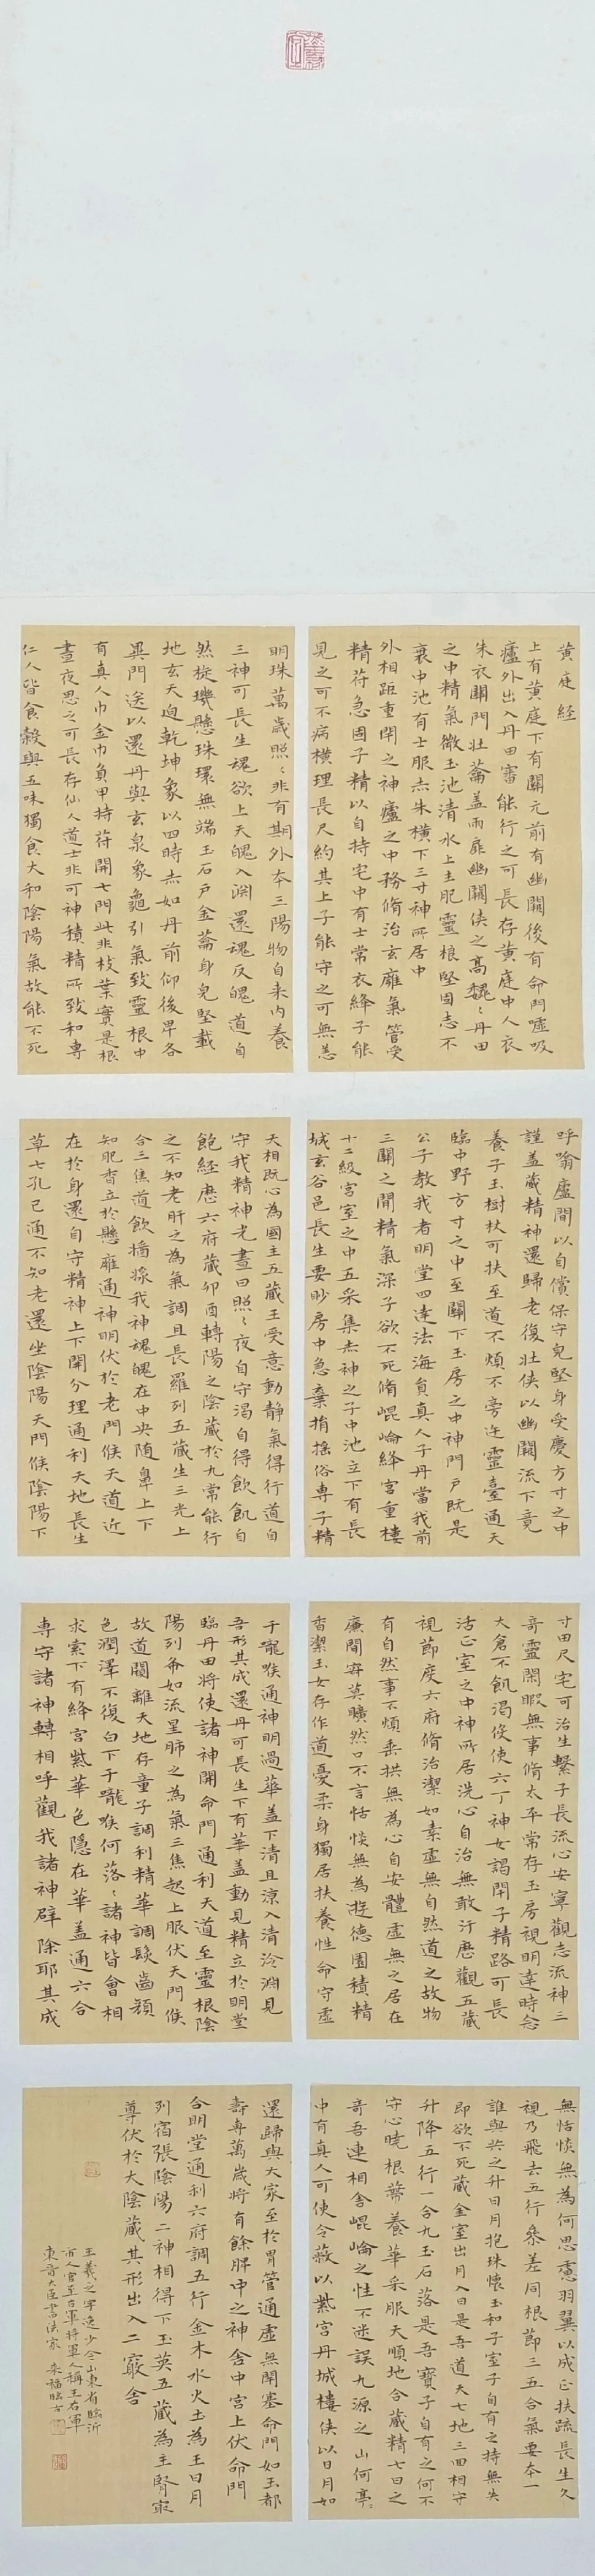 黃庭経
上有黃庭下有關元前有幽闕後有命門噓吸
廬外出入丹田審能行之可長存黃庭中人衣
朱衣關門壮蘥蓋兩扉幽闕俠之高魏〻丹田
之中精氣微玉池清水上生肥靈根堅固志不
衰中池有士服赤朱橫下三寸神所居中
外相距重閉之神廬之中務脩治玄廱氣管受
精符急固子精以自持宅中有士常衣絳子能
見之可不病橫理長尺約其上子能守之可無恙
呼噏廬間以自償保守皃堅身受慶方寸之中
謹蓋藏精神還歸老復壯俠以幽闕流下竟
養子玉樹杖可扶至道不煩不旁迕靈臺通天
臨中野方寸之中至關下玉房之中神門戶既是
公子教我者明堂四達法海員真人子丹當我前
三關之間精氣深子欲不死脩崐崘絳宮重樓
十二級宮室之中五采集赤神之子中池立下有長
城玄谷邑長生要眇房中急棄捐搖俗専子精
寸田尺宅可治生繫子長流心安寧觀志流神三
奇靈閑暇無事脩太平常存玉房視明達時念
大倉不飢渴伇使六丁神女謁閉子精路可長
活正室之中神所居洗心自治無敢汙歷觀五藏
視節度六府脩治潔如素虛無自然道之故物
有自然事不煩垂拱無為心自安體虛無之居在
廉間寂莫曠然口不言恬惔無為遊德園積精
香潔玉女存作道憂柔身獨居扶養性命守虛
無恬惔無為何思慮羽翼以成正扶疏長生久
視乃飛去五行參差同根節三五合氣要本一
誰與共之升日月抱珠懷玉和子室子自有之持無失
即欲不死藏金室出月入日是吾道天七地三回相守
升降五行一合九玉石落是吾寶子自有之何不
守心曉根蔕養華采服天順地合藏精七日之
奇吾連相舍崐崘之性不迷誤九源之山何亭〻
中有真人可使令蔽以紫宮丹城樓俠以日月如
明珠萬歲照〻非有期外本三陽物自来內養
三神可長生魂欲上天魄入淵還魂反魄道自
然㨁璣懸珠環無端玉石戶金蘥身皃堅載
地玄天迫乾坤象以四時赤如丹前仰後卑各
異門送以還丹與玄泉象龜引氣致靈根中
有真人巾金巾負甲持符開七門此非枝葉實是根
晝夜思之可長存仙人道士非可神積精所致和専
仁人皆食穀與五味獨食大和陰陽氣故能不死
天相既心為國主五藏王受意動靜氣得行道自
守我精神光晝日照〻夜自守渴自得飲飢自
飽經歷六府藏卯酉轉陽之陰藏於九常能行
之不知老肝之為氣調且長羅列五藏生三光上
合三焦道飲醬漿我神魂魄在中央随鼻上下
知肥香立於懸廱通神明伏於老門候天道近
在於身還自守精神上下開分理通利天地長生
草七孔已通不知老還坐陰陽天門候陰陽下
于嚨喉通神明過華蓋下清且涼入清泠淵見
吾形其成還丹可長生下有華蓋動見精立於明堂
臨丹田將使諸神開命門通利天道至靈根陰
陽列布如流星肺之為氣三焦起上服伏天門候
故道闚離天地存童子調利精華調髮齒顏
色潤澤不復白下于嚨喉何落〻諸神皆會相
求索下有絳宮紫華色隱在華蓋通六合
専守諸神轉相呼觀我諸神辟除耶其成
還歸與大家至於胃管通虛無閉塞命門如玉都
壽専萬歲將有餘脾中之神舍中宮上伏命門
合明堂通利六府調五行金木水火土為王日月
列宿張陰陽二神相得下玉英五藏為主腎㝡
尊伏於大陰藏其形出入二竅舍
王羲之字逸少今山東省臨沂
市人官至右軍將軍人稱王右軍
東晉大臣書法家